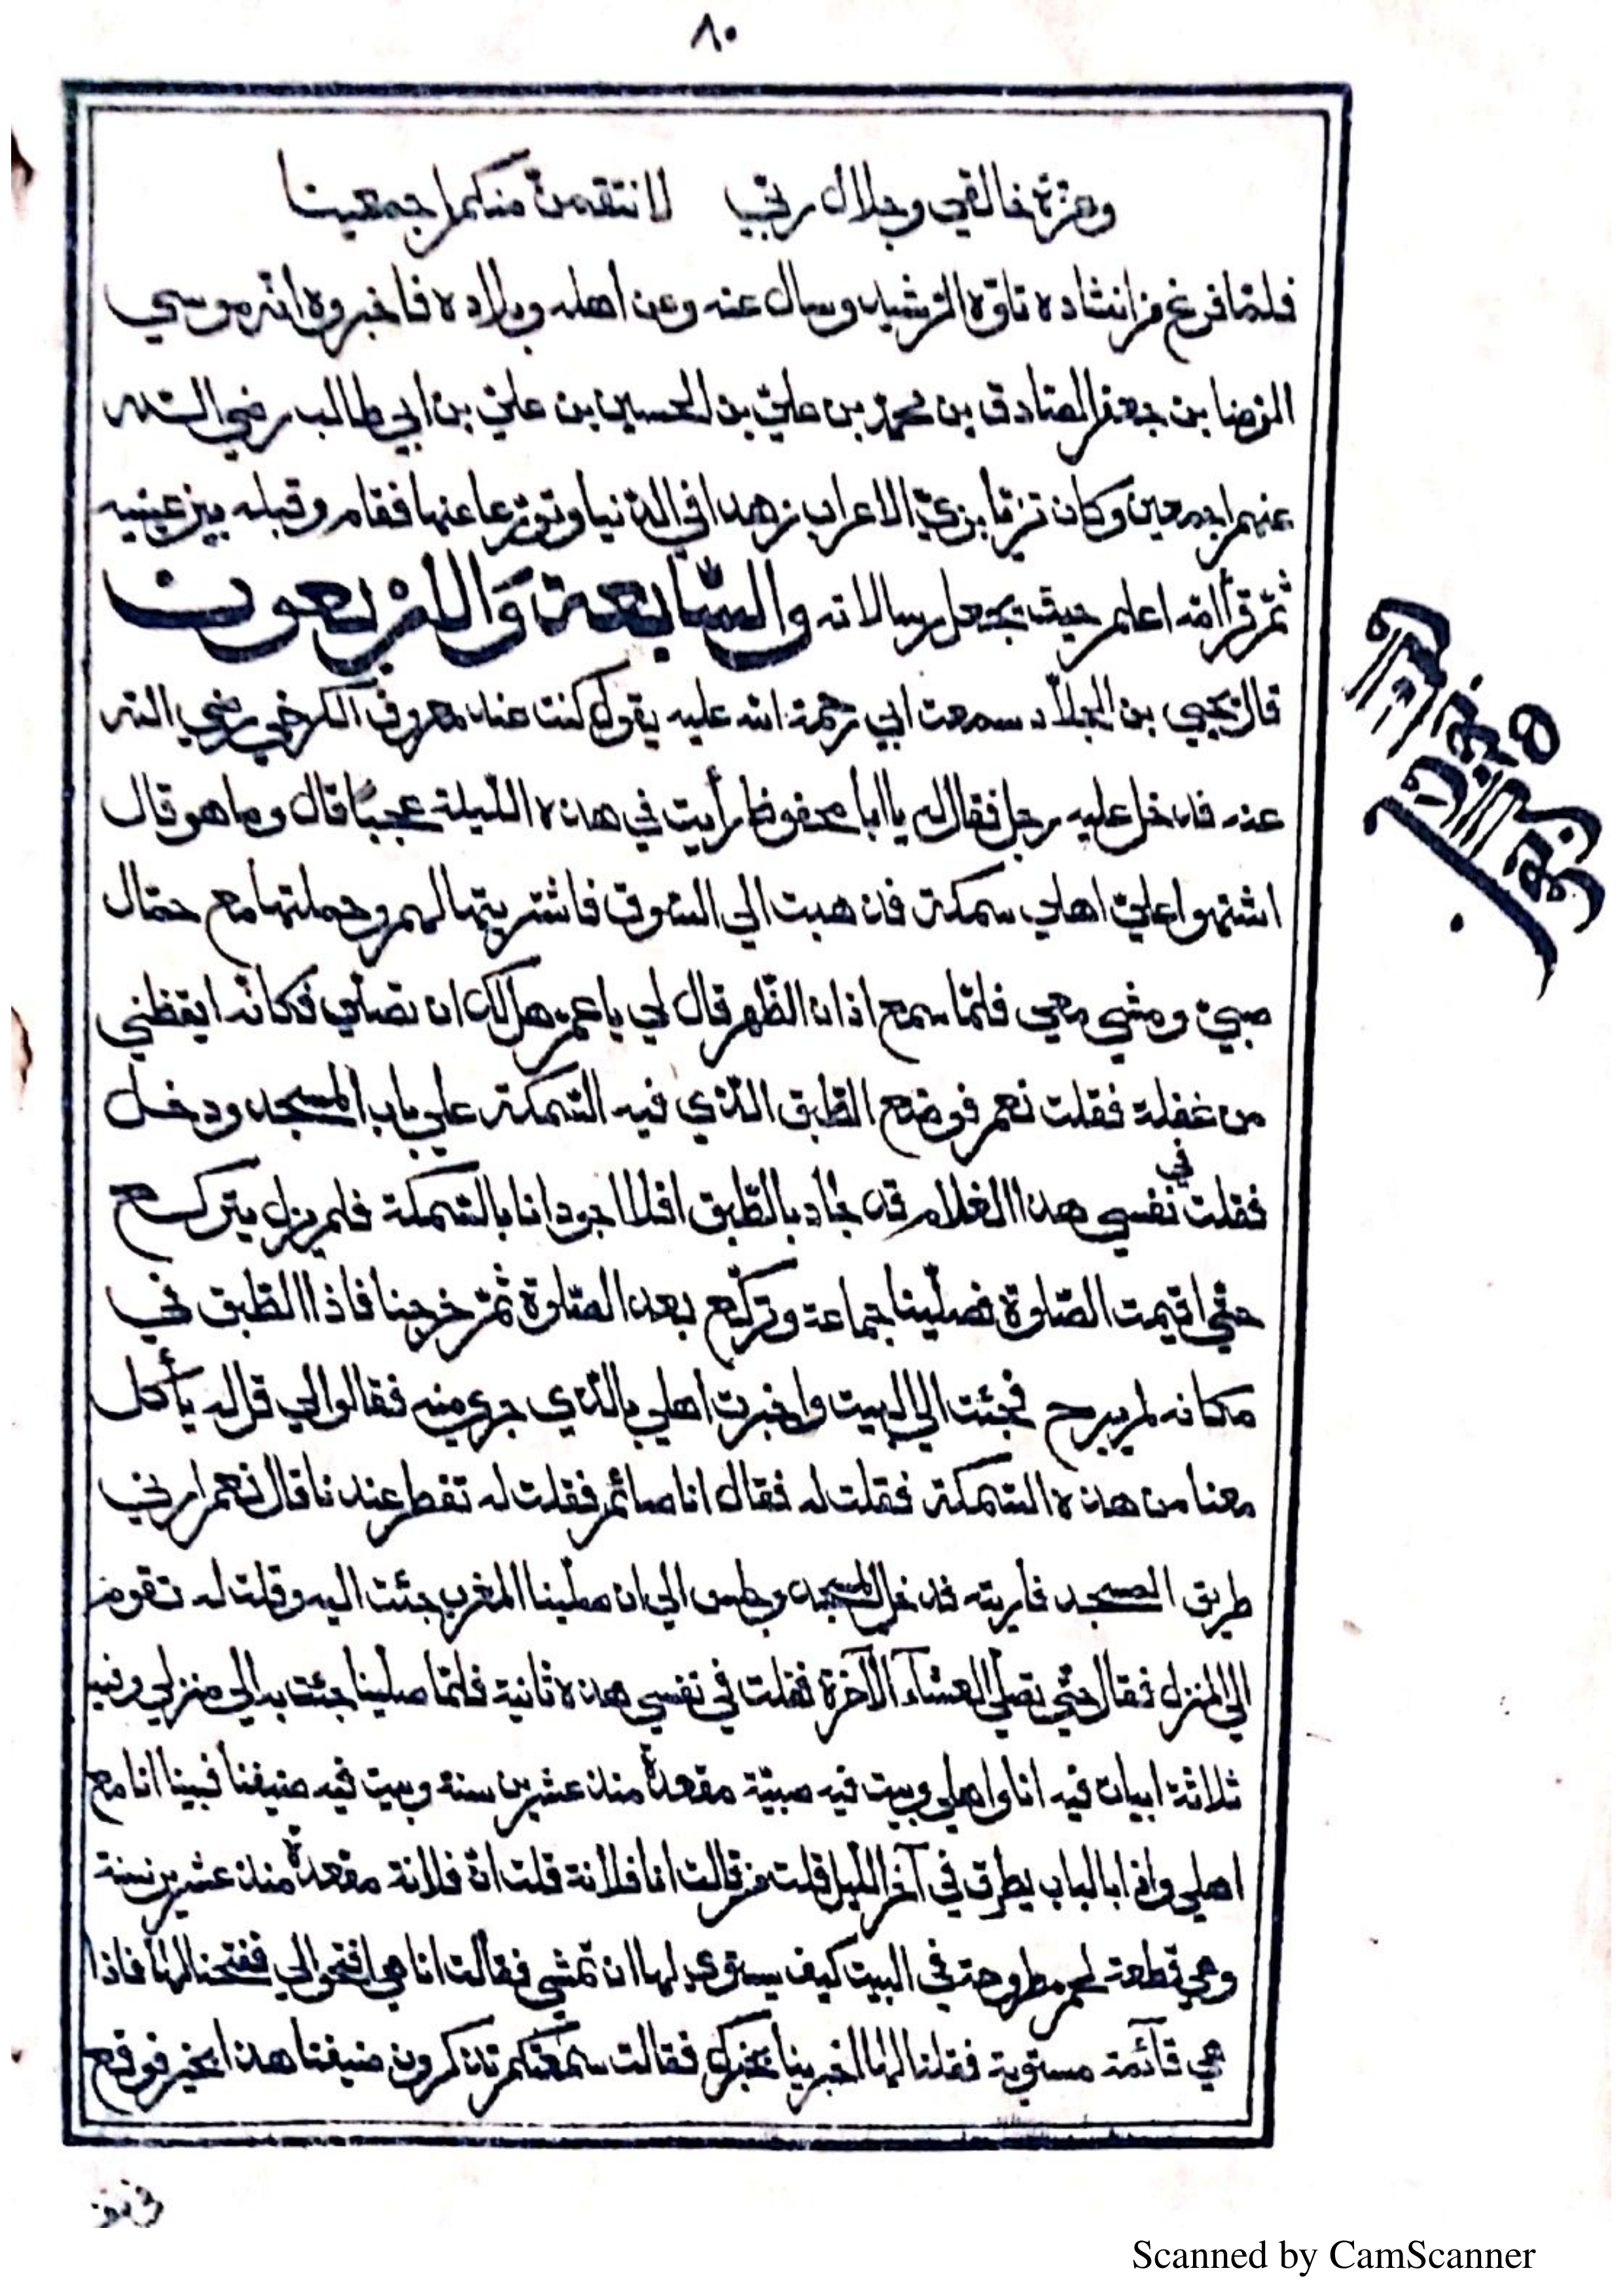 ٨٠
وعزة خالقي وجلال ربي لانتقمن منكم اجمعينا
فلما فرغ من انشاده تاوّه الرشيد وسال عنه وعن اهله وبلاده فاخبروه انه موسي
الرضا بن جعفر الصادق بن محمد بن علي بن الحسين بن علي بن ابي طالب رضي الله
عنهم اجمعين وكان تزيّا بزيّ الاعراب زهدا في الدنيا وتورّعا عنها فقام وقبله بين عينيه
ثمّ قرأ الله اعلم حيث يجعل رسالاته والسّابعة والاربعون
قال يحيي بن الجلّاد سمعت ابي رحمة الله عليه يقول كنت عند معروف الكرخي رضي الله
عنه فدخل عليه رجل فقال له يا ابا محفوظ رأيت في هذه الليلة عجبًا قال وما هو قال
اشتهوا عليّ اهلي سمكة فذهبت الي السّوق فاشتريتها لهم وحملتها مع حمّال
صبيّ ومشي معي فلمّا سمع اذان الظّهر قال لي يا عمّ هل لك ان تصلّي فكانّه ايقظني
من غفلة فقلت نعم فوضع الطّبق الّذي فيه السّمكة علي باب المسجد ودخل
فقلت في نفسي هذا الغلام قد جاد بالطّبق افلا اجود انا بالسّمكة فلم يزل يتركّع
حتّي اقيمت الصّلوة فصلّينا جماعة وتركّع بعد الصّلوة ثمّ خرجنا فاذا الطّبق في
مكانه لم يبرح فجئت الي البيت واخبرت اهلي بالّذي جري منه فقالوا لي قل له يأكل
معنا من هذه السّمكة فقلت له فقال انا صائم فقلت له تفطر عندنا قال نعم ارني
طريق المسجد فاريته فدخل المسجد وجلس الي ان صلّينا المغرب جئت اليه وقلت له تقوم
الي المنزل فقال حتّي نصلّي العشآء الآخرة فقلت في نفسي هذه ثانية فلمّا صلّينا جئت به الي منزلي وفيه
ثلاثة ابيات فيه انا واهلي وبيت فيه صبيّة مقعدة منذ عشرين سنة وبيت فيه ضيفنا فبينا انا مع
اهلي واذا بالباب يطرق في آخر اللّيل قلت من قالت انا فلانة قلت انّ فلانة مقعدة منذ عشرين سنة
وهي قطعة لحم مطروحة في البيت كيف يستوي لها ان تمشي فقالت انا هي افتحوا لي ففتحنا لها فاذا
هي قآئمة مستوية فقلنا لها اخبرينا بخبرك فقالت سمعتكم تذكرون ضيفنا هذا بخير فوقع
في نفـ
Scanned by CamScanner